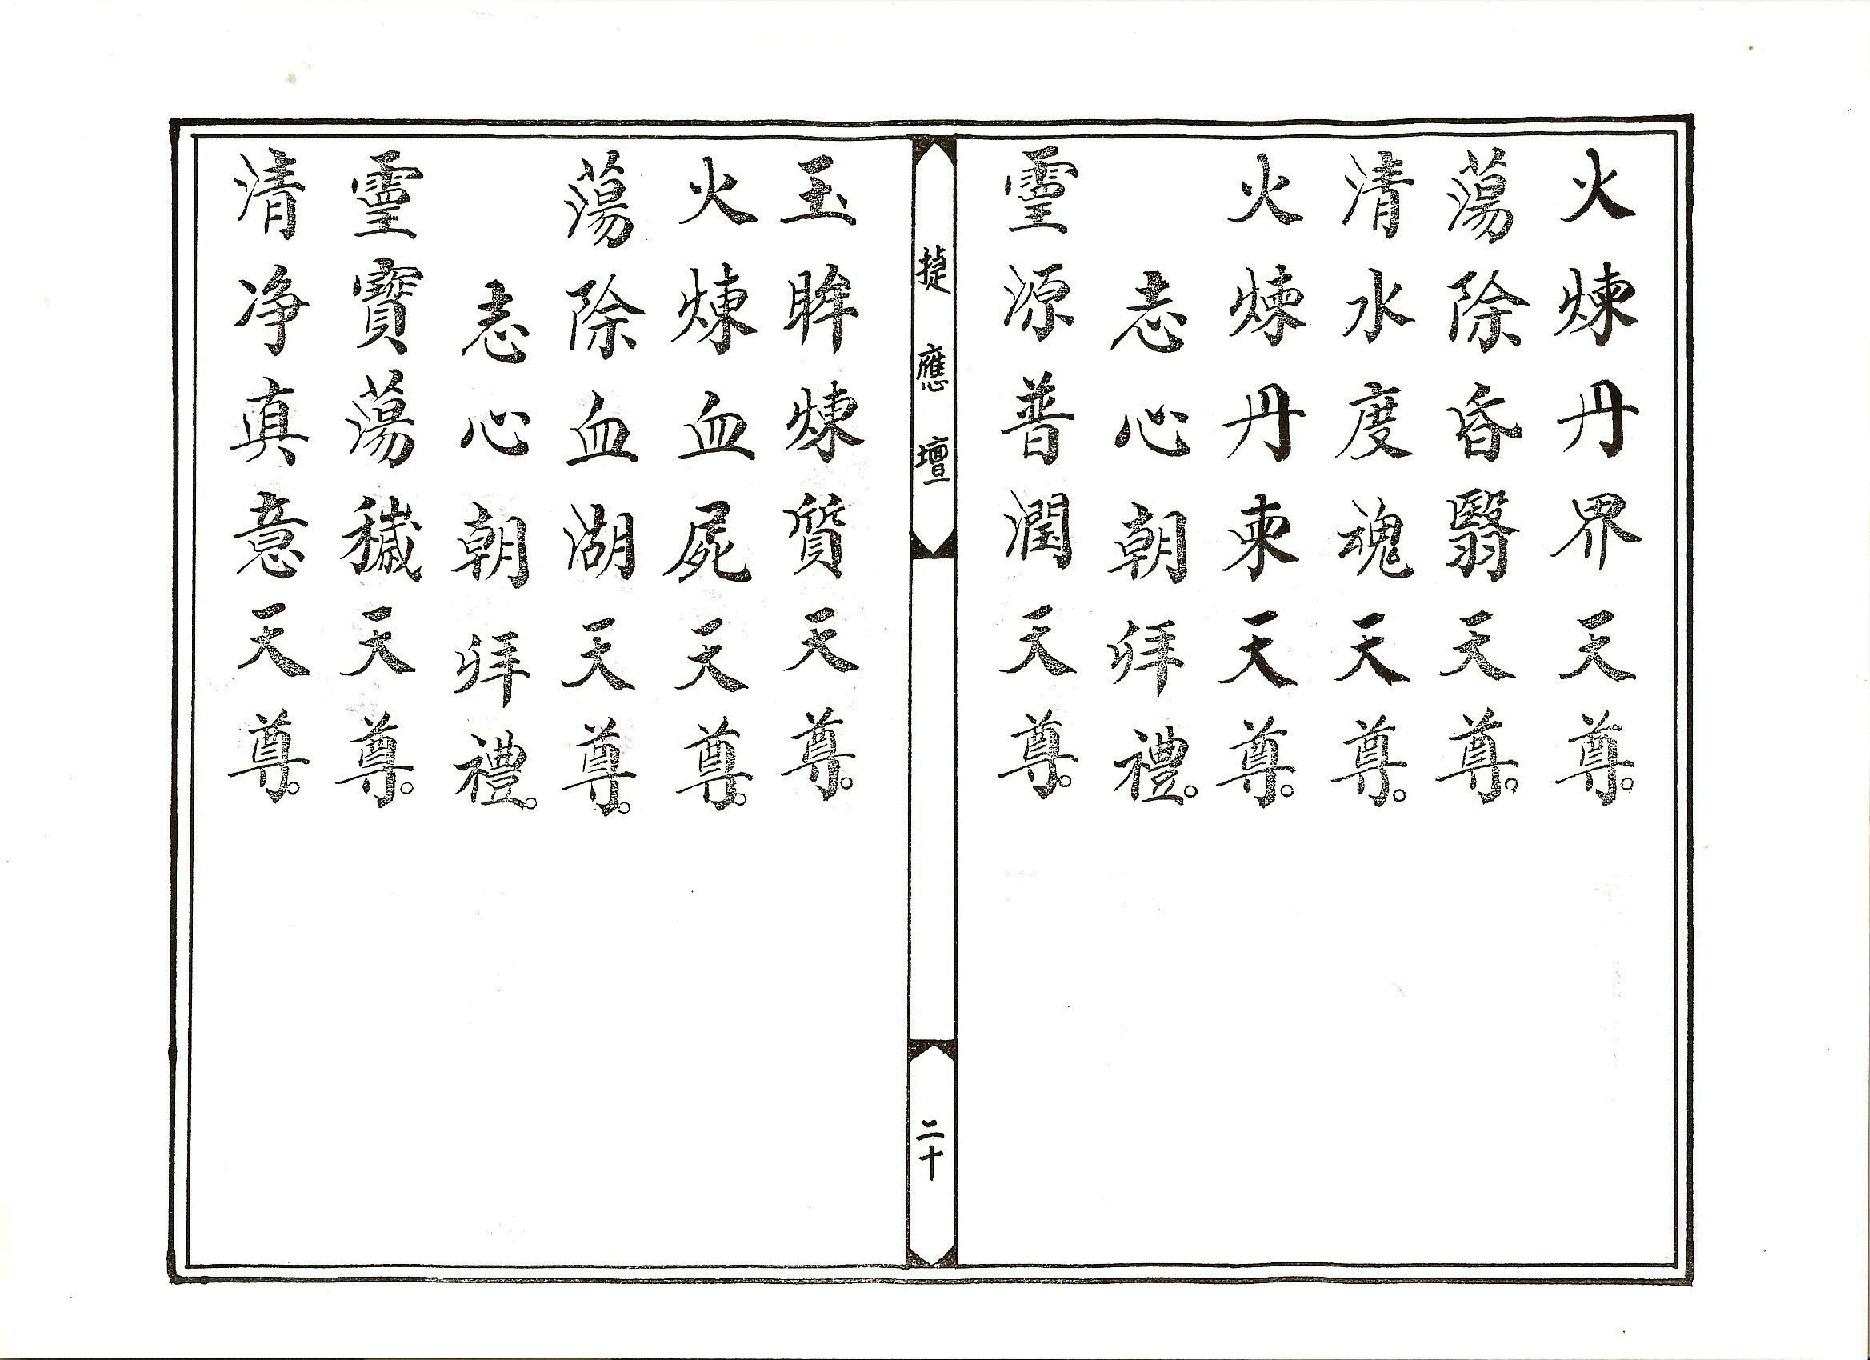 火煉丹界天尊。
蕩除昏翳天尊。
清水度魂天尊。
火煉丹東天尊。
志心朝拜禮。
靈源普潤天尊。
捷應壇
二十
玉眸煉質天尊。
火煉血屍天尊。
蕩除血湖天尊。
志心朝拜禮。
靈寶蕩穢天尊。
清净真意天尊。